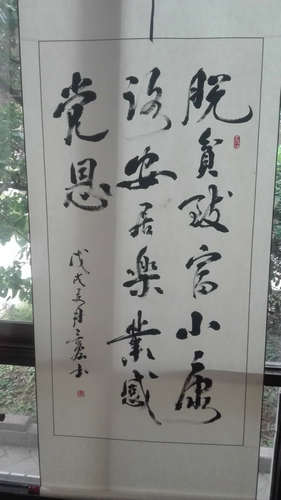 脱貧致富小康
路安居樂業感
党恩
戊戌年月
书